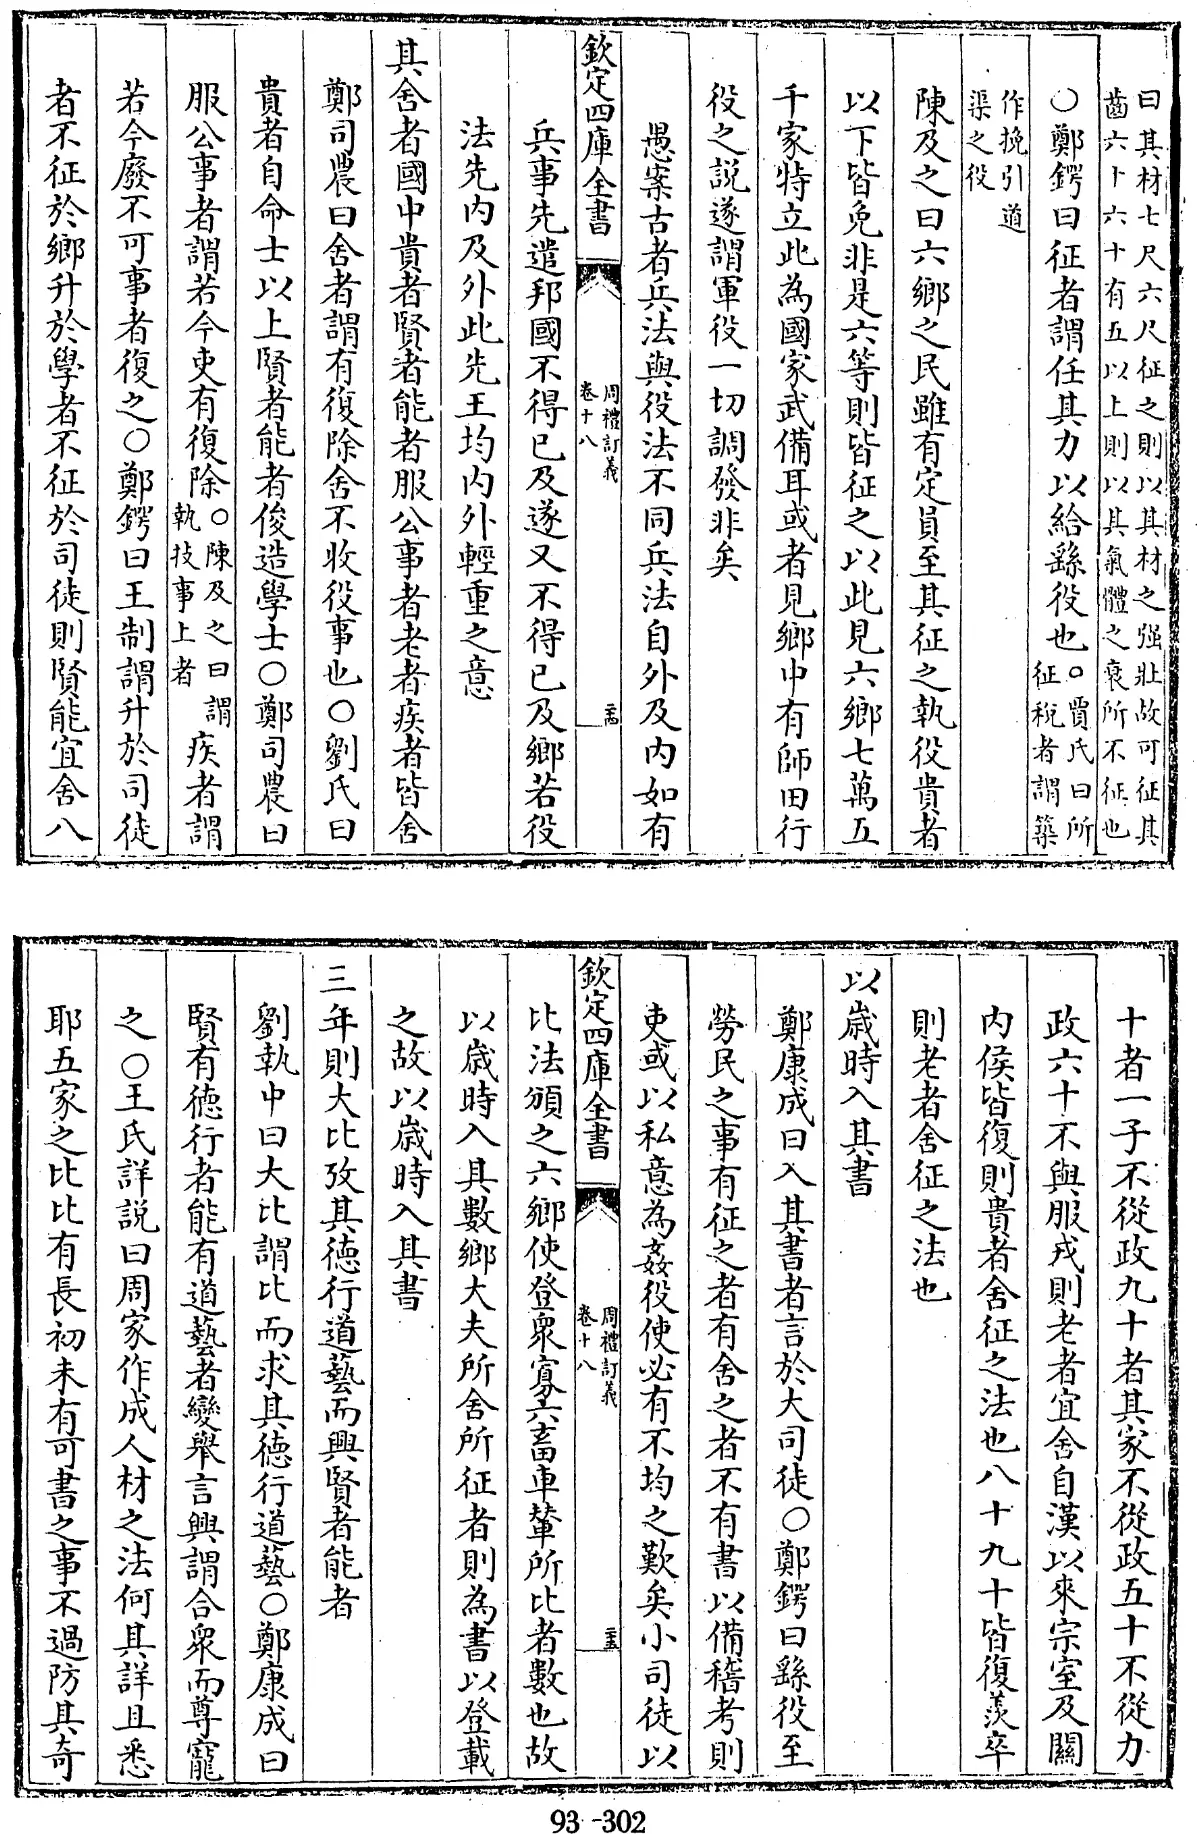 曰其材七尺六尺征之則以其材之强壯故可征其
齒六十六十有五以上則以其氣體之衰所不征也
○鄭鍔曰征者謂任其力以給繇役也○賈氏曰所
征稅者謂築
作挽引道
渠之役
陳及之曰六鄉之民雖有定員至其征之執役貴者
以下皆免非是六等則皆征之以此見六鄉七萬五
千家特立此為國家武備耳或者見鄉中有師田行
役之説遂謂軍役一切調發非矣
愚案古者兵法與役法不同兵法自外及内如有
欽定四庫全書
周禮訂義
卷十八
二十四
兵事先遣邦國不得已及遂又不得已及鄉若役
法先内及外此先王均内外輕重之意
其舍者國中貴者賢者能者服公事者老者疾者皆舍
鄭司農曰舍者謂有復除舍不收役事也○劉氏曰
貴者自命士以上賢者能者俊造學士○鄭司農曰
服公事者謂若今吏有復除○陳及之曰謂
執技事上者
疾者謂
若今廢不可事者復之○鄭鍔曰王制謂升於司徒
者不征於鄉升於學者不征於司徒則賢能宜舍八
十者一子不從政九十者其家不從政五十不從力
政六十不與服戎則老者宜舍自漢以來宗室及關
内侯皆復則貴者舍征之法也八十九十皆復羨卒
則老者舍征之法也
以嵗時入其書
鄭康成曰入其書者言於大司徒○鄭鍔曰繇役至
勞民之事有征之者有舍之者不有書以備稽考則
吏或以私意為姦役使必有不均之歎矣小司徒以
欽定四庫全書
周禮訂義
卷十八
二十五
比法頒之六鄉使登衆寡六畜車輦所比者數也故
以嵗時入其數鄉大夫所舍所征者則為書以登載
之故以嵗時入其書
三年則大比攷其德行道藝而興賢者能者
劉執中曰大比謂比而求其德行道藝○鄭康成曰
賢有德行者能有道藝者變舉言興謂合衆而尊寵
之○王氏詳説曰周家作成人材之法何其詳且悉
耶五家之比比有長初未有可書之事不過防其奇
93-302